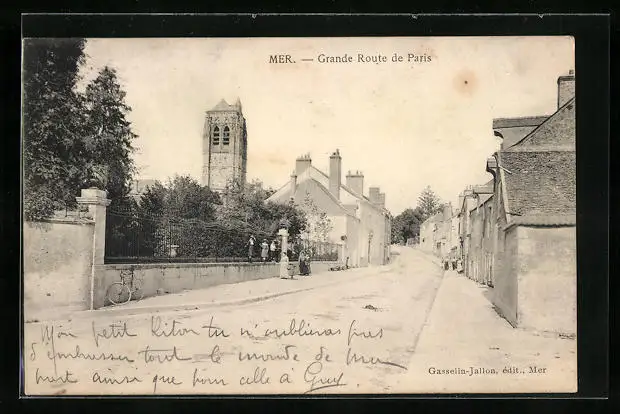 MER. — Grande Route de Paris
Mon petit Riton tu n'oublieras pas
d'embrasser tout le monde de ma
part ainsi que pour celle à Guy
Gasselin-Jallon, édit., Mer